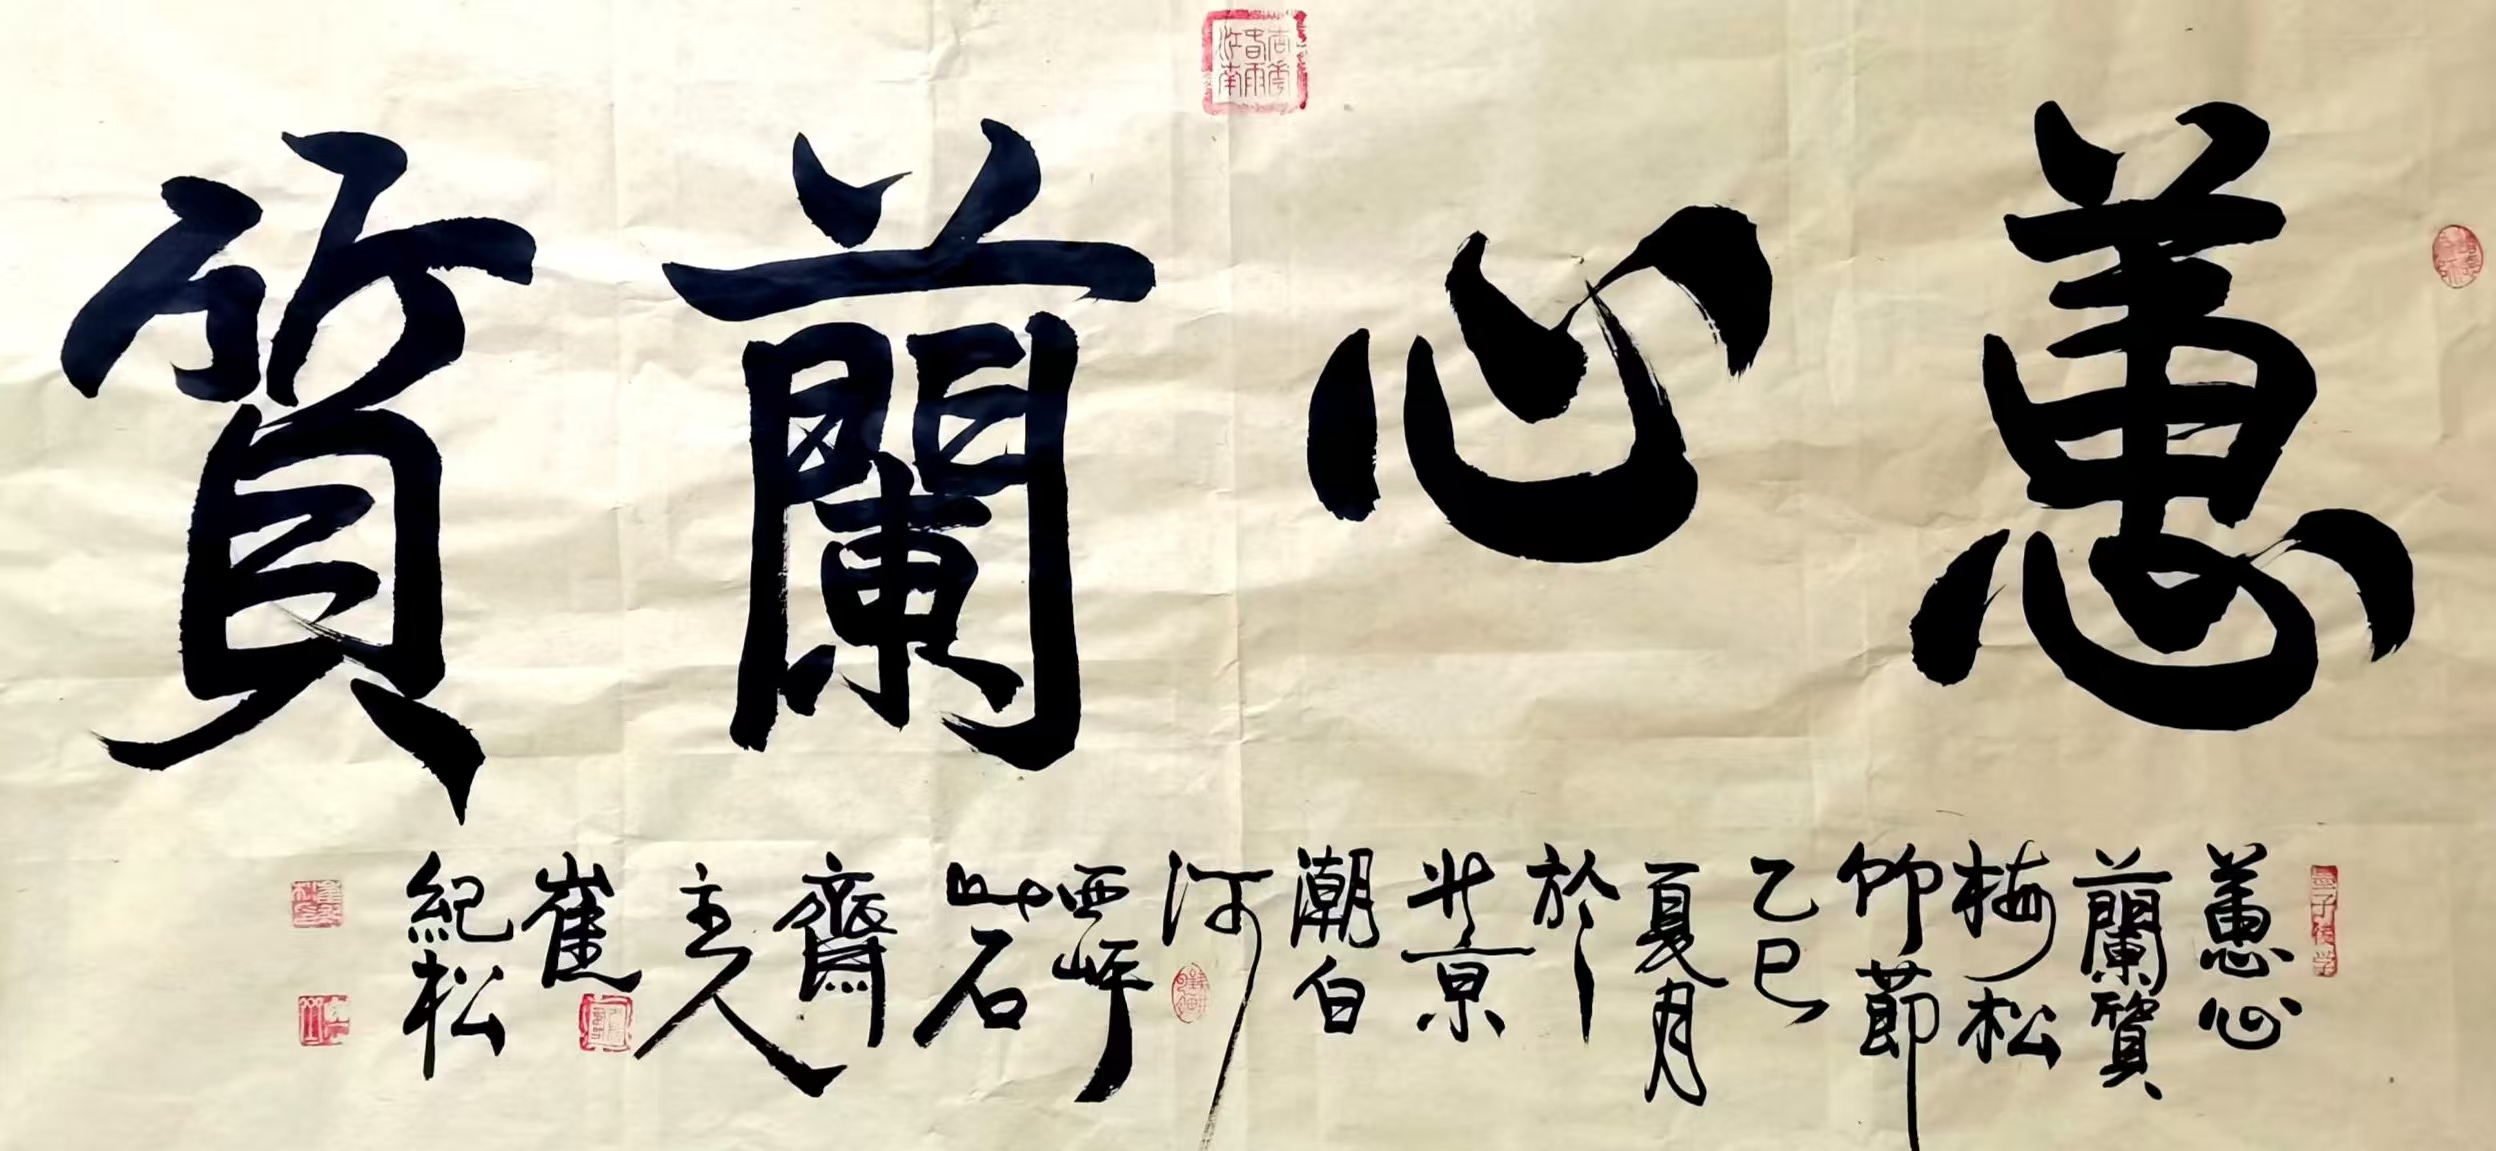 蕙心蘭質
蕙心
蘭質
梅松
竹節
乙巳
夏月
於
北京
潮白
河
西岸
叶石
齋
主人
崔
紀松